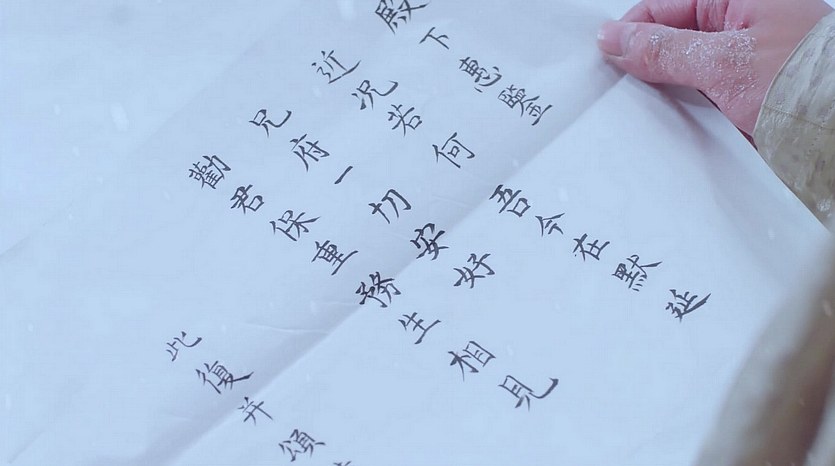 殿下惠鑒
近況若何 吾今在默延
兄府一切安好
勸君保重務生相見
此復并頌